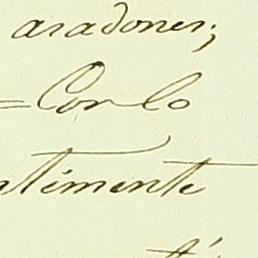 aradones;
= Con lo
ntimente